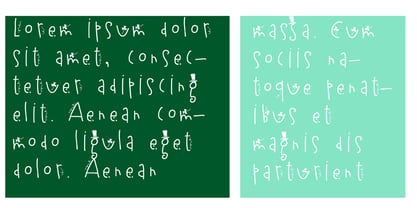 Lorem ipsum dolor
sit amet, consec-
tetuer adipiscing
elit. Aenean com-
modo ligula eget
dolor. Aenean
massa. Cum
sociis na-
toque penat-
ibus et
magnis dis
parturient